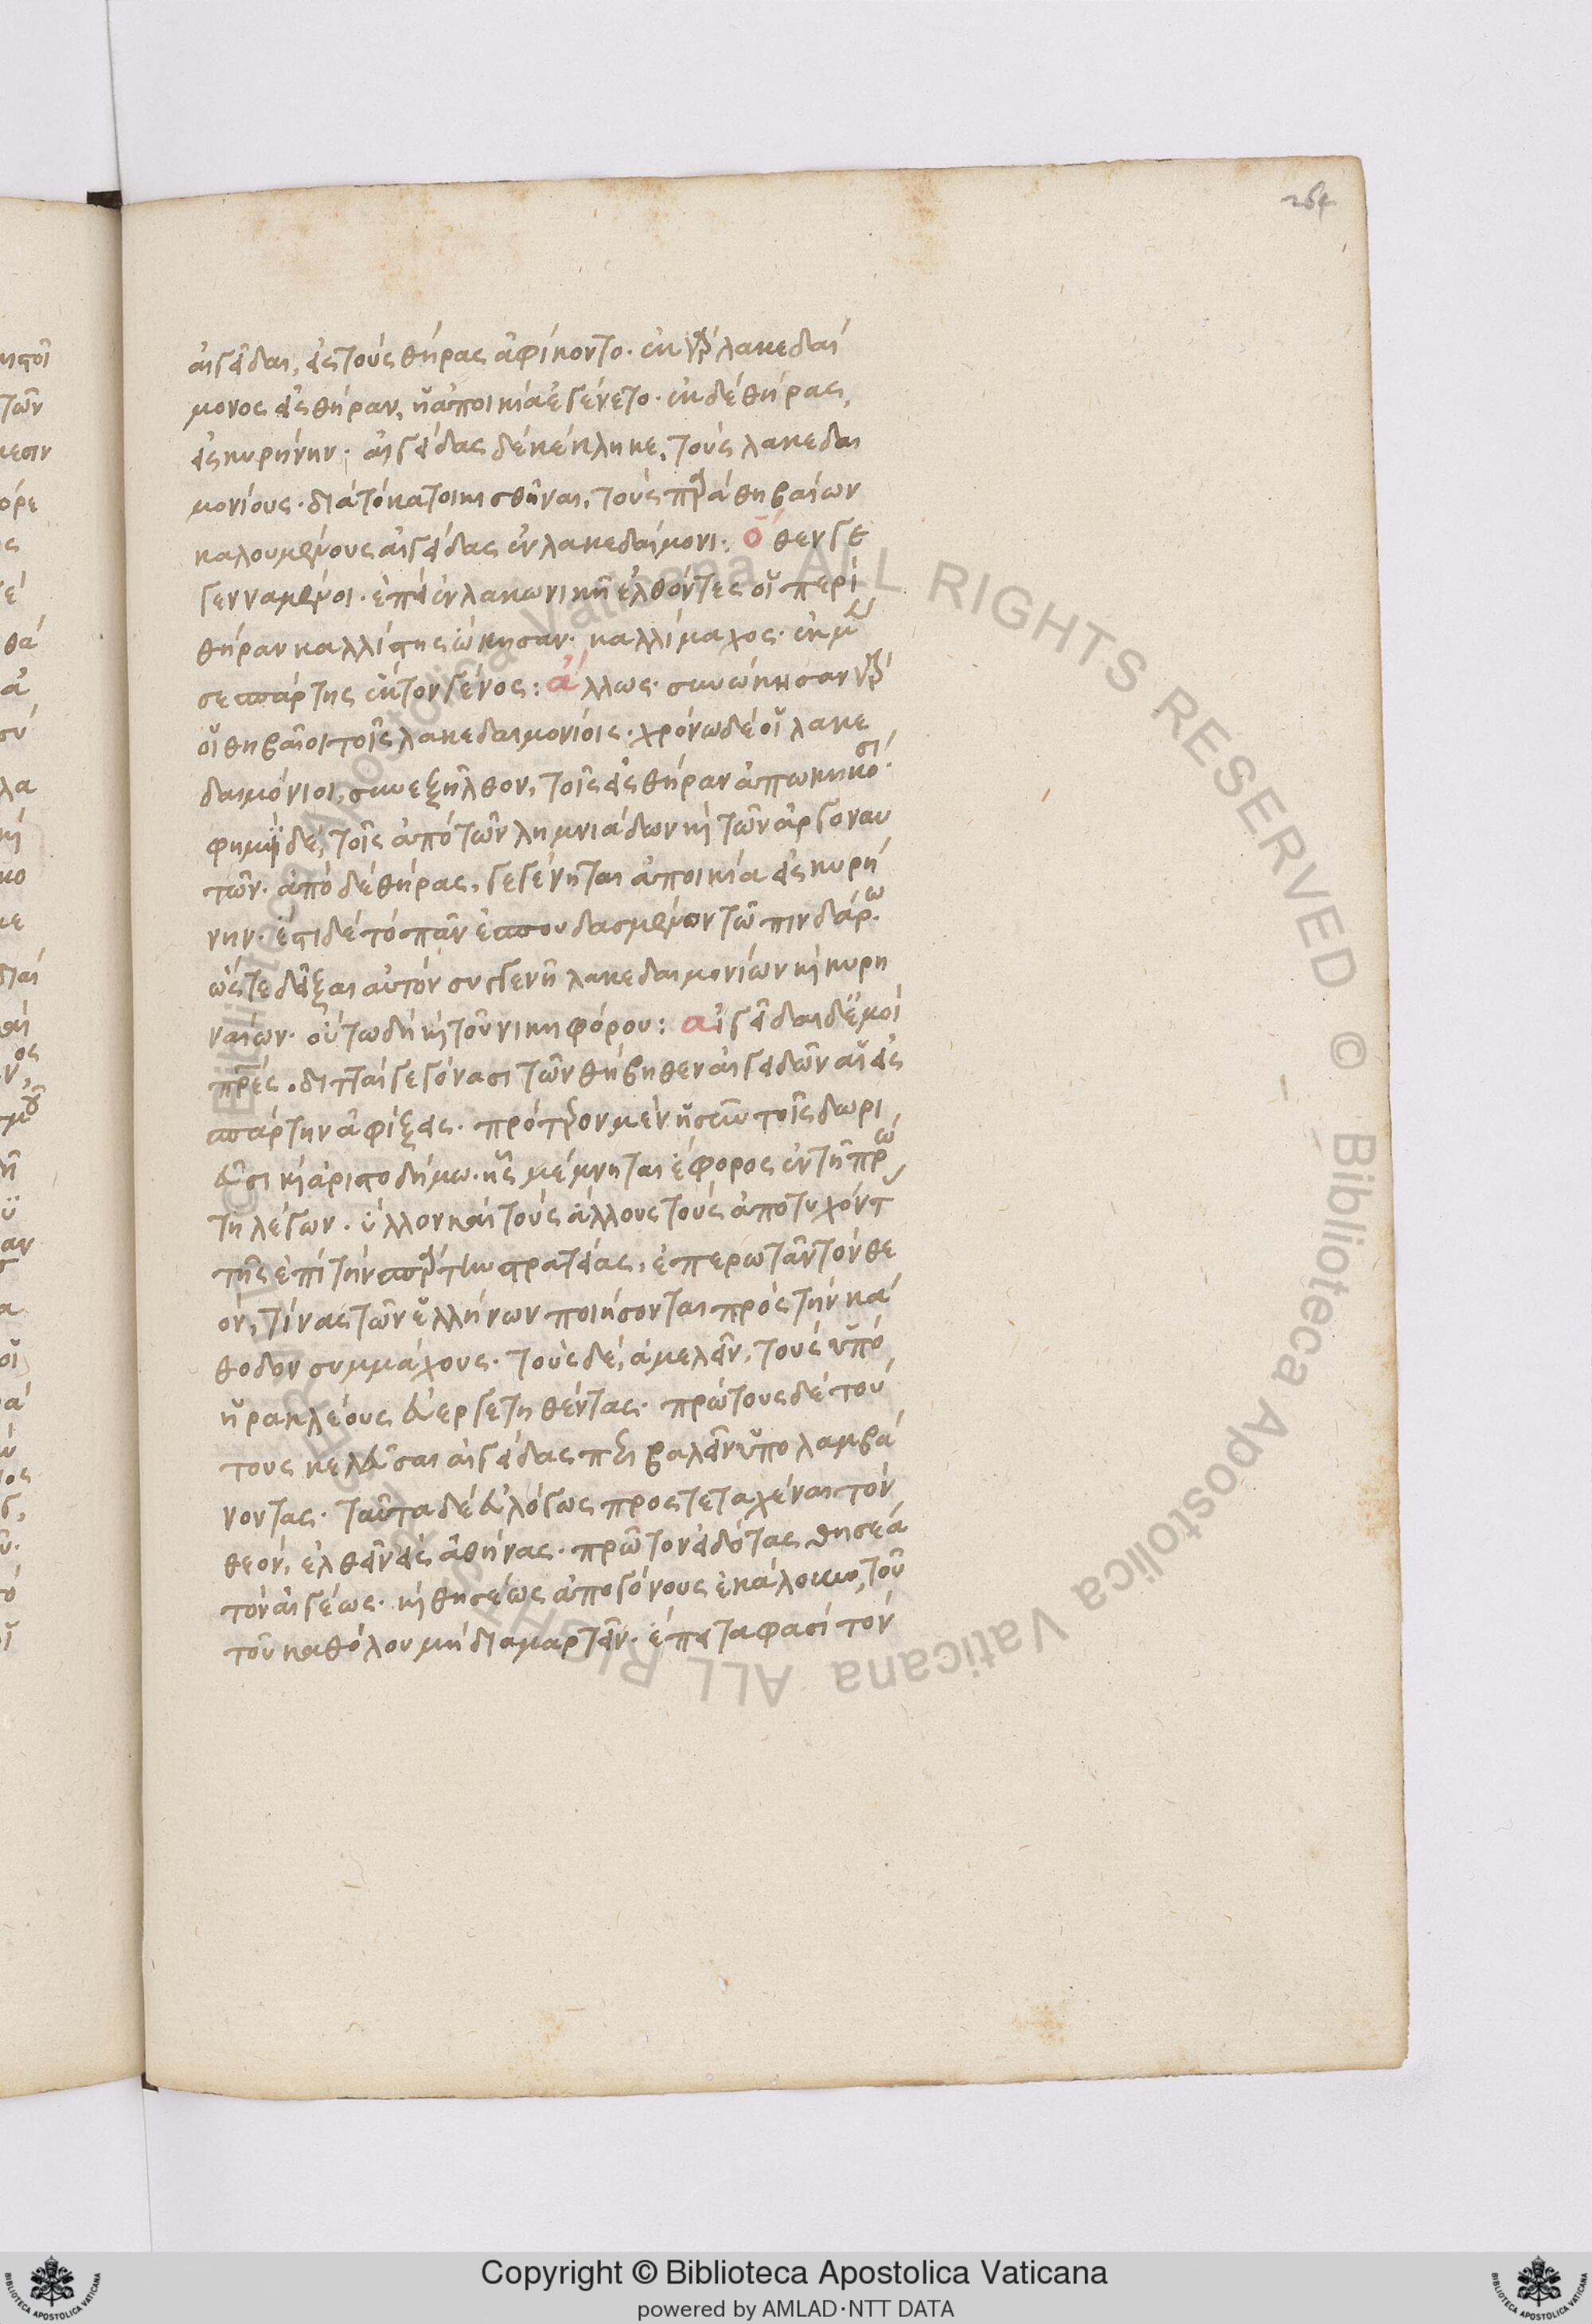 264
αἰγεῖδαι, εἰς τοὺς θήρας ἀφίκοντο. ἐκ γὰρ λακεδαί
μονος εἰς θήραν, ἡ ἀποικία ἐγένετο. ἐκ δὲ θήρας,
εἰς κυρήνην. αἰγείδας δὲ κέκληκε, τοὺς λακεδαι
μονίους. διὰ τὸ κατοικισθῆναι, τοὺς παρὰ θηβαίων
καλουμένους αἰγείδας ἐν λακεδαίμονι. ὅθεν γε
γενναμένοι. ἐπεὶ ἐν λακωνικῇ ἐλθόντες οἱ περὶ
θήραν καλλίστης ᾤκησαν. καλλίμαχος. ἐκ μὲν
σε σπάρτης ἑκτον γένος: ἄλλως. συνώκησαν γὰρ
οἱ θηβαῖοι τοῖς λακεδαιμονίοις. χρόνω δὲ οἱ λακε
δαιμόνιοι, συνεξῆλθον, τοῖς εἰς θήραν ἀπωκηκόσι.
φημὶ δὲ, τοῖς ἀπὸ τῶν λημνιάδων καὶ τῶν ἀργοναυ
τῶν. ἀπὸ δὲ θήρας, γεγένηται ἀποικία εἰς κυρή
νην. ἔστι δὲ τὸ πᾶν ἐσπουδασμένον τῶ πινδάρω.
ὥστε δεῖξαι αὐτὸν συγγενῆ λακεδαιμονίων καὶ κυρη
ναίων. οὕτω δὴ καὶ τοῦ νικηφόρου: αἰγεῖδαι δὲ μοὶ
πρες. διτταὶ γεγόνασι τῶν θήβηθεν αἰγειδῶν αἱ εἰς
σπάρτην ἀφίξεις. πρότερον μὲν ἡ σὺν τοῖς δωρι
εῦσι καὶ ἀριστοδήμω. ἧς μέμνηται ἔφορος ἐν τῆ πρώ
τη λέγων. ὕλλον καὶ τοὺς ἄλλους τοὺς ἀποτυχόντ
τῆς ἐπὶ τὴν σπάρτην στρατείας, ἐπερωτᾶν τὸν θε
ὸν, τίνας τῶν ἑλλήνων ποιήσονται πρὸς τὴν κά
θοδον συμμάχους. τοὺς δὲ, ἀμελεῖν, τοὺς ὑπὸ
ἡρακλέους εὐεργετηθέντας. πρώτους δὲ τού
τους κελεῦσαι αἰγείδας περιβαλεῖν ὑπολαμβά
νοντας. ταῦτα δὲ εὐλόγως προστεταχέναι τὸν
θεὸν, ἐλθεῖν εἰς ἀθήνας. πρῶτον εἰδότας θησέα
τὸν αἰγέως. καὶ θησέως ἀπογόνους ἐκάλουν, τοῦ
τοῦ καθόλου μὴ διαμαρτεῖν. ἔπειτα φασὶ τὸν
Copyright © Biblioteca Apostolica Vaticana
powered by AMLAD·NTT DATA